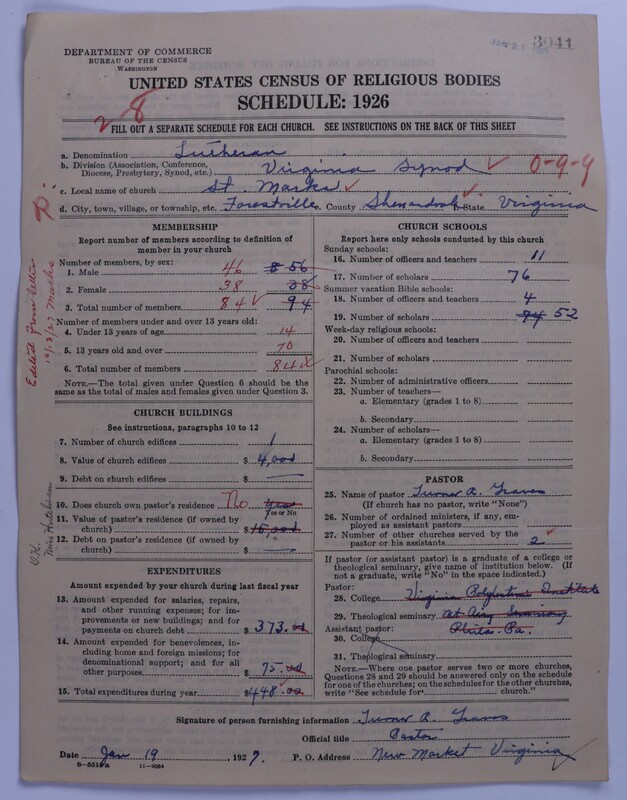 3041
DEPARTMENT OF COMMERCE
BUREAU OF THE CENSUS
WASHINGTON
UNITED STATES CENSUS OF RELIGIOUS BODIES
SCHEDULE: 1926
28
FILL OUT A SEPARATE SCHEDULE FOR EACH CHURCH. SEE INSTRUCTIONS ON THE BACK OF THIS SHEET
a. Denomination Lutheran
b. Division (Association, Conference, Diocese, Presbytery, Synod, etc.) Virginia Synod 0-9-9
c. Local name of church St. Marks
d. City, town, village, or township, etc. Forestville e. County Shenandoah f. State Virginia
MEMBERSHIP
Report number of members according to definition of member in your church
Number of members, by sex:
1. Male 46 56
2. Female 38 38
3. Total number of members 84 94
Number of members under and over 13 years old:
4. Under 13 years of age 14
5. 13 years old and over 70
6. Total number of members 84
NOTE.—The total given under Question 6 should be the same as the total of males and females given under Question 3.
CHURCH BUILDINGS
See instructions, paragraphs 10 to 12
7. Number of church edifices 1
8. Value of church edifices $ 4,000
9. Debt on church edifices $
10. Does church own pastor's residence No Yes
Yes or No
11. Value of pastor's residence (if owned by church) $
12. Debt on pastor's residence (if owned by church) $
EXPENDITURES
Amount expended by your church during last fiscal year
13. Amount expended for salaries, repairs, and other running expenses; for improvements or new buildings; and for payments on church debt $ 373.00
14. Amount expended for benevolences, including home and foreign missions; for denominational support; and for all other purposes $ 75.00
15. Total expenditures during year $448.00
CHURCH SCHOOLS
Report here only schools conducted by this church
Sunday schools:
16. Number of officers and teachers 11
17. Number of scholars 76
Summer vacation Bible schools:
18. Number of officers and teachers 4
19. Number of scholars 94 52
Week-day religious schools:
20. Number of officers and teachers
21. Number of scholars
Parochial schools:
22. Number of administrative officers
23. Number of teachers—
a. Elementary (grades 1 to 8)
b. Secondary
24. Number of scholars—
a. Elementary (grades 1 to 8)
b. Secondary
PASTOR
25. Name of pastor Turner A. Graves
(If church has no pastor, write "None")
26. Number of ordained ministers, if any, employed as assistant pastors
27. Number of other churches served by the pastor or his assistants 2
If pastor (or assistant pastor) is a graduate of a college or theological seminary, give name of institution below. (If not a graduate, write "No" in the space indicated.)
Pastor:
28. College Virginia Polytechnic Institute
29. Theological seminary Mt Airy Seminary
Phila. Pa.
Assistant pastor:
30. College
31. Theological seminary
NOTE.—Where one pastor serves two or more churches, Questions 28 and 29 should be answered only on the schedule for one of the churches; on the schedules for the other churches, write "See schedule for church."
Signature of person furnishing information Turner A. Graves
Official title Pastor
Date Jan 19, 1927. P. O. Address New Market Virginia
8-5519a 11-9054